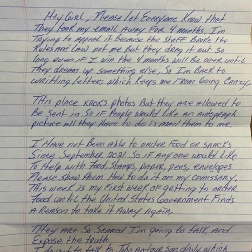 Hey Girl, Please let Everyone Know that
They took my email away for 4 months, I'm
Trying to appeal it because the staff broke the
Rules and Law not me but they drag it out so
long even if I win the 4 months will be over until
They dream up something else, So I'm back to
writing letters, which keeps me from going crazy.
This place photos but They are allowed to
be sent in so if People would like an autograph
picture all they have to do is mail them to me.
I Have not been able to order food or snacks
Since September 2021 So if anyone would like
To Help with food, stamps, paper, pens, envelopes
Please show them How to do it on my commissary,
This week is my first week of getting to order
food until the United States Government finds
A Reason to take it away again.
They Are So Scared I'm going to talk and
Expose the truth.
talk to daily which